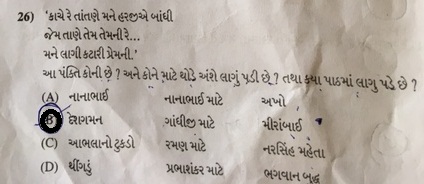 26) 'કાચે રે તાંતણે મને હરજીએ બાંધી
જેમ તાણે તેમ તેમની રે...
મને લાગી કટારી પ્રેમની.'
આ પંક્તિ કોની છે ? અને કોને માટે થોડે અંશે લાગું પડી છે ? તથા કયા પાઠમાં લાગુ પડે છે ?
(A) નાનાભાઈ નાનાભાઈ માટે અખો
દેશગમન ગાંધીજી માટે મીરાંબાઈ
(C) આભલાનો ટુકડો રમણ માટે નરસિંહ મહેતા
(D) થીંગડું પ્રભાશંકર માટે ભગવાન બુદ્ધ